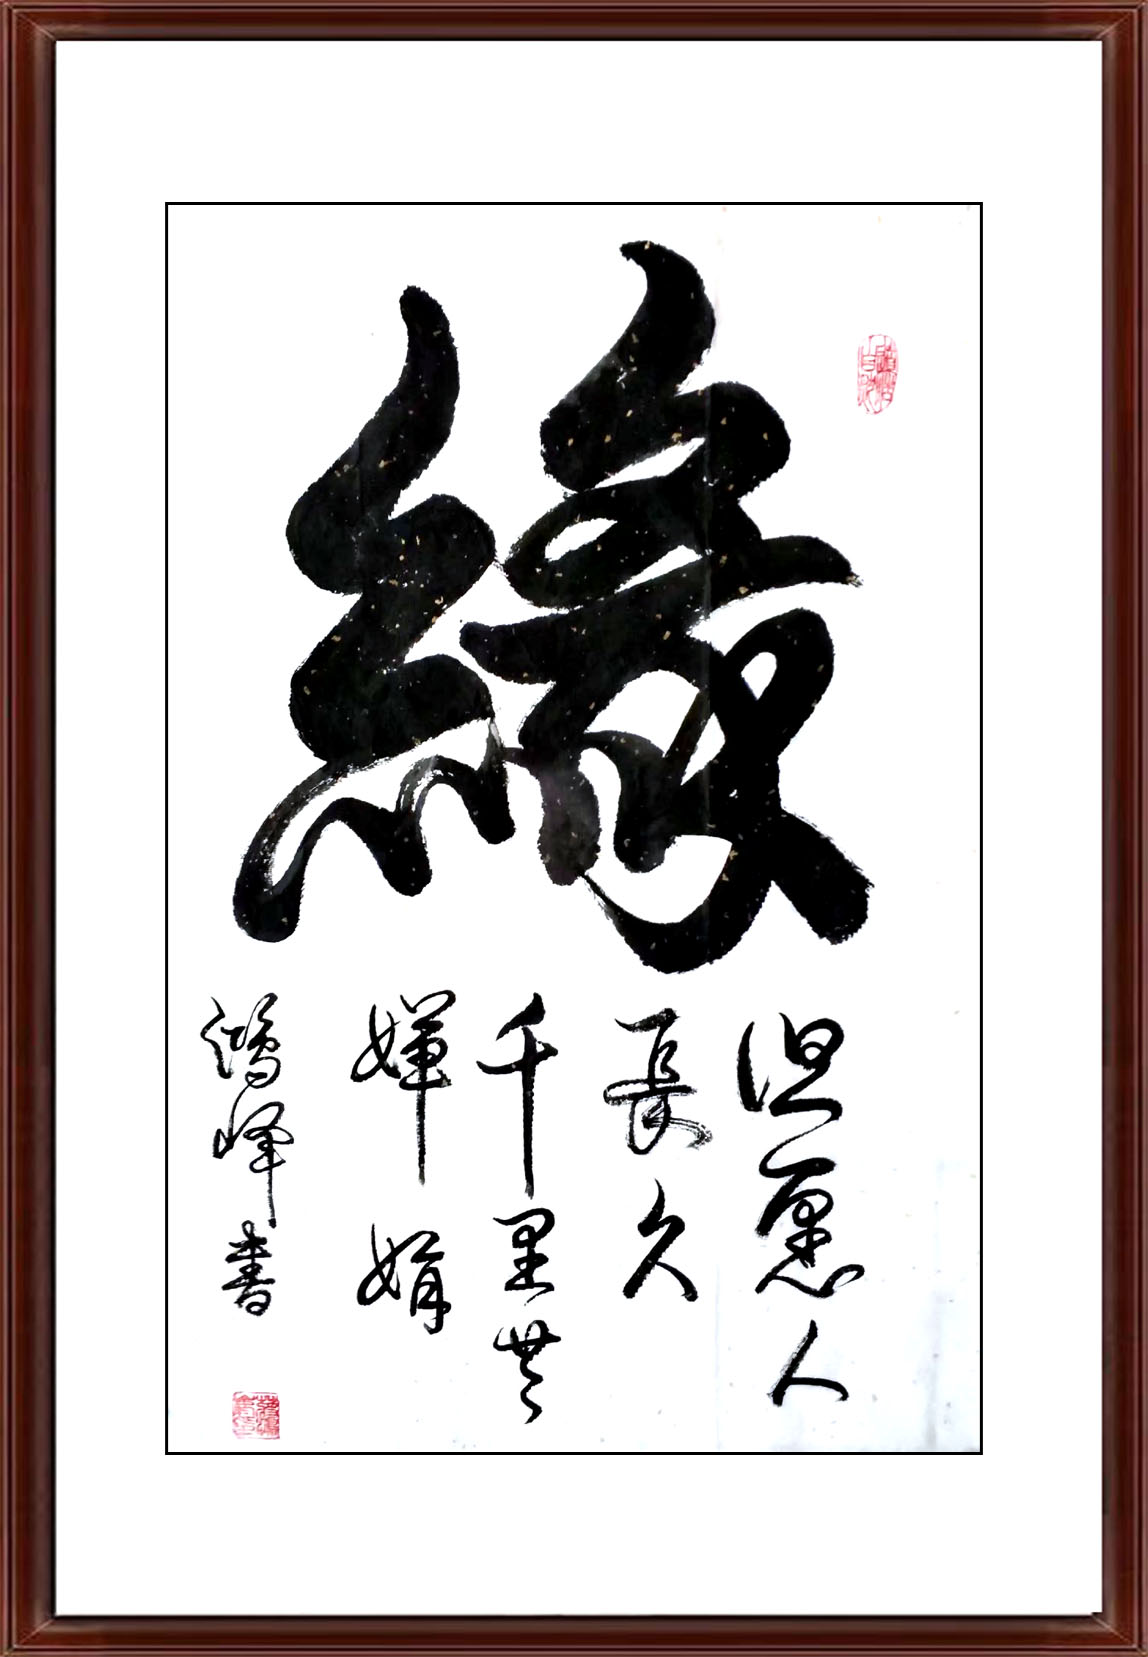 緣
但愿人
長久
千里共
嬋娟
鴻峰書